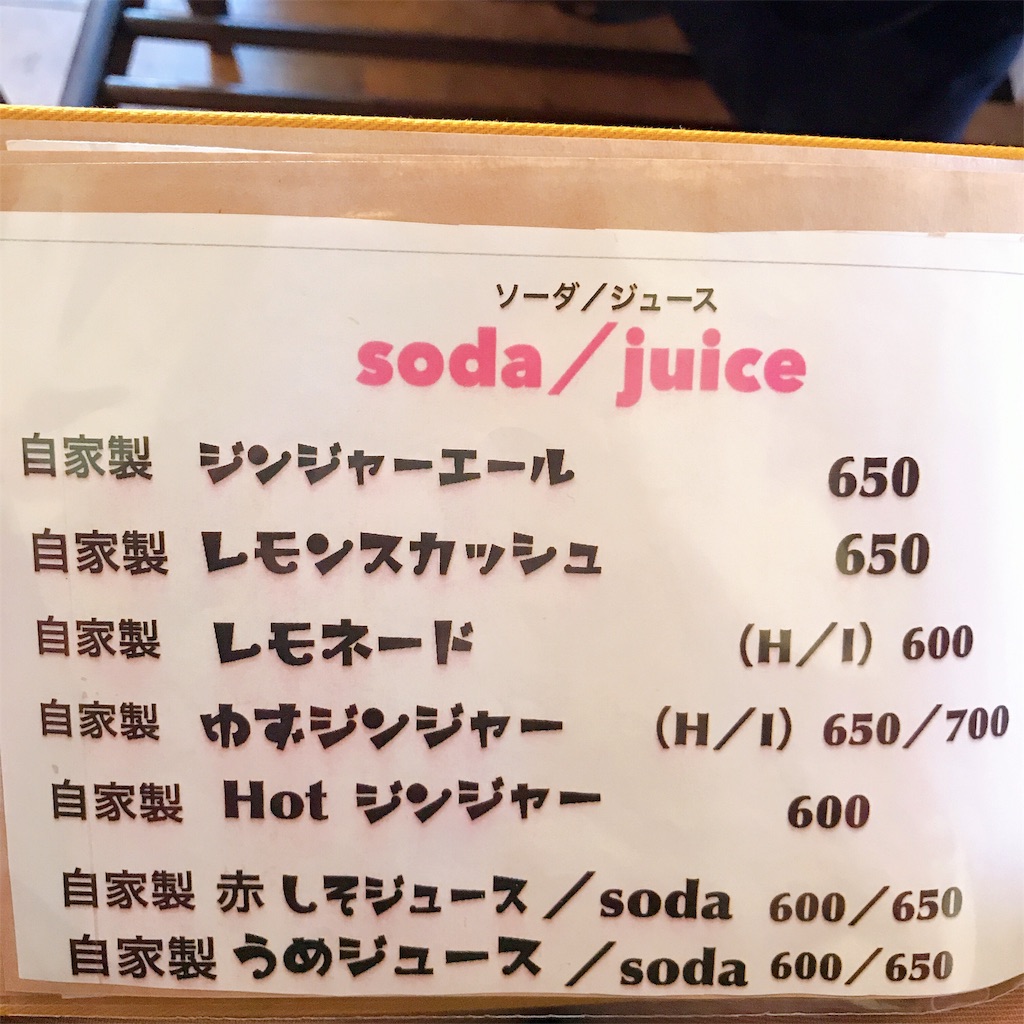 ソーダ／ジュース
soda／juice
自家製 ジンジャーエール 650
自家製 レモンスカッシュ 650
自家製 レモネード （H／I） 600
自家製 ゆずジンジャー （H／I） 650／700
自家製 Hot ジンジャー 600
自家製 赤しそジュース／soda 600／650
自家製 うめジュース／soda 600／650